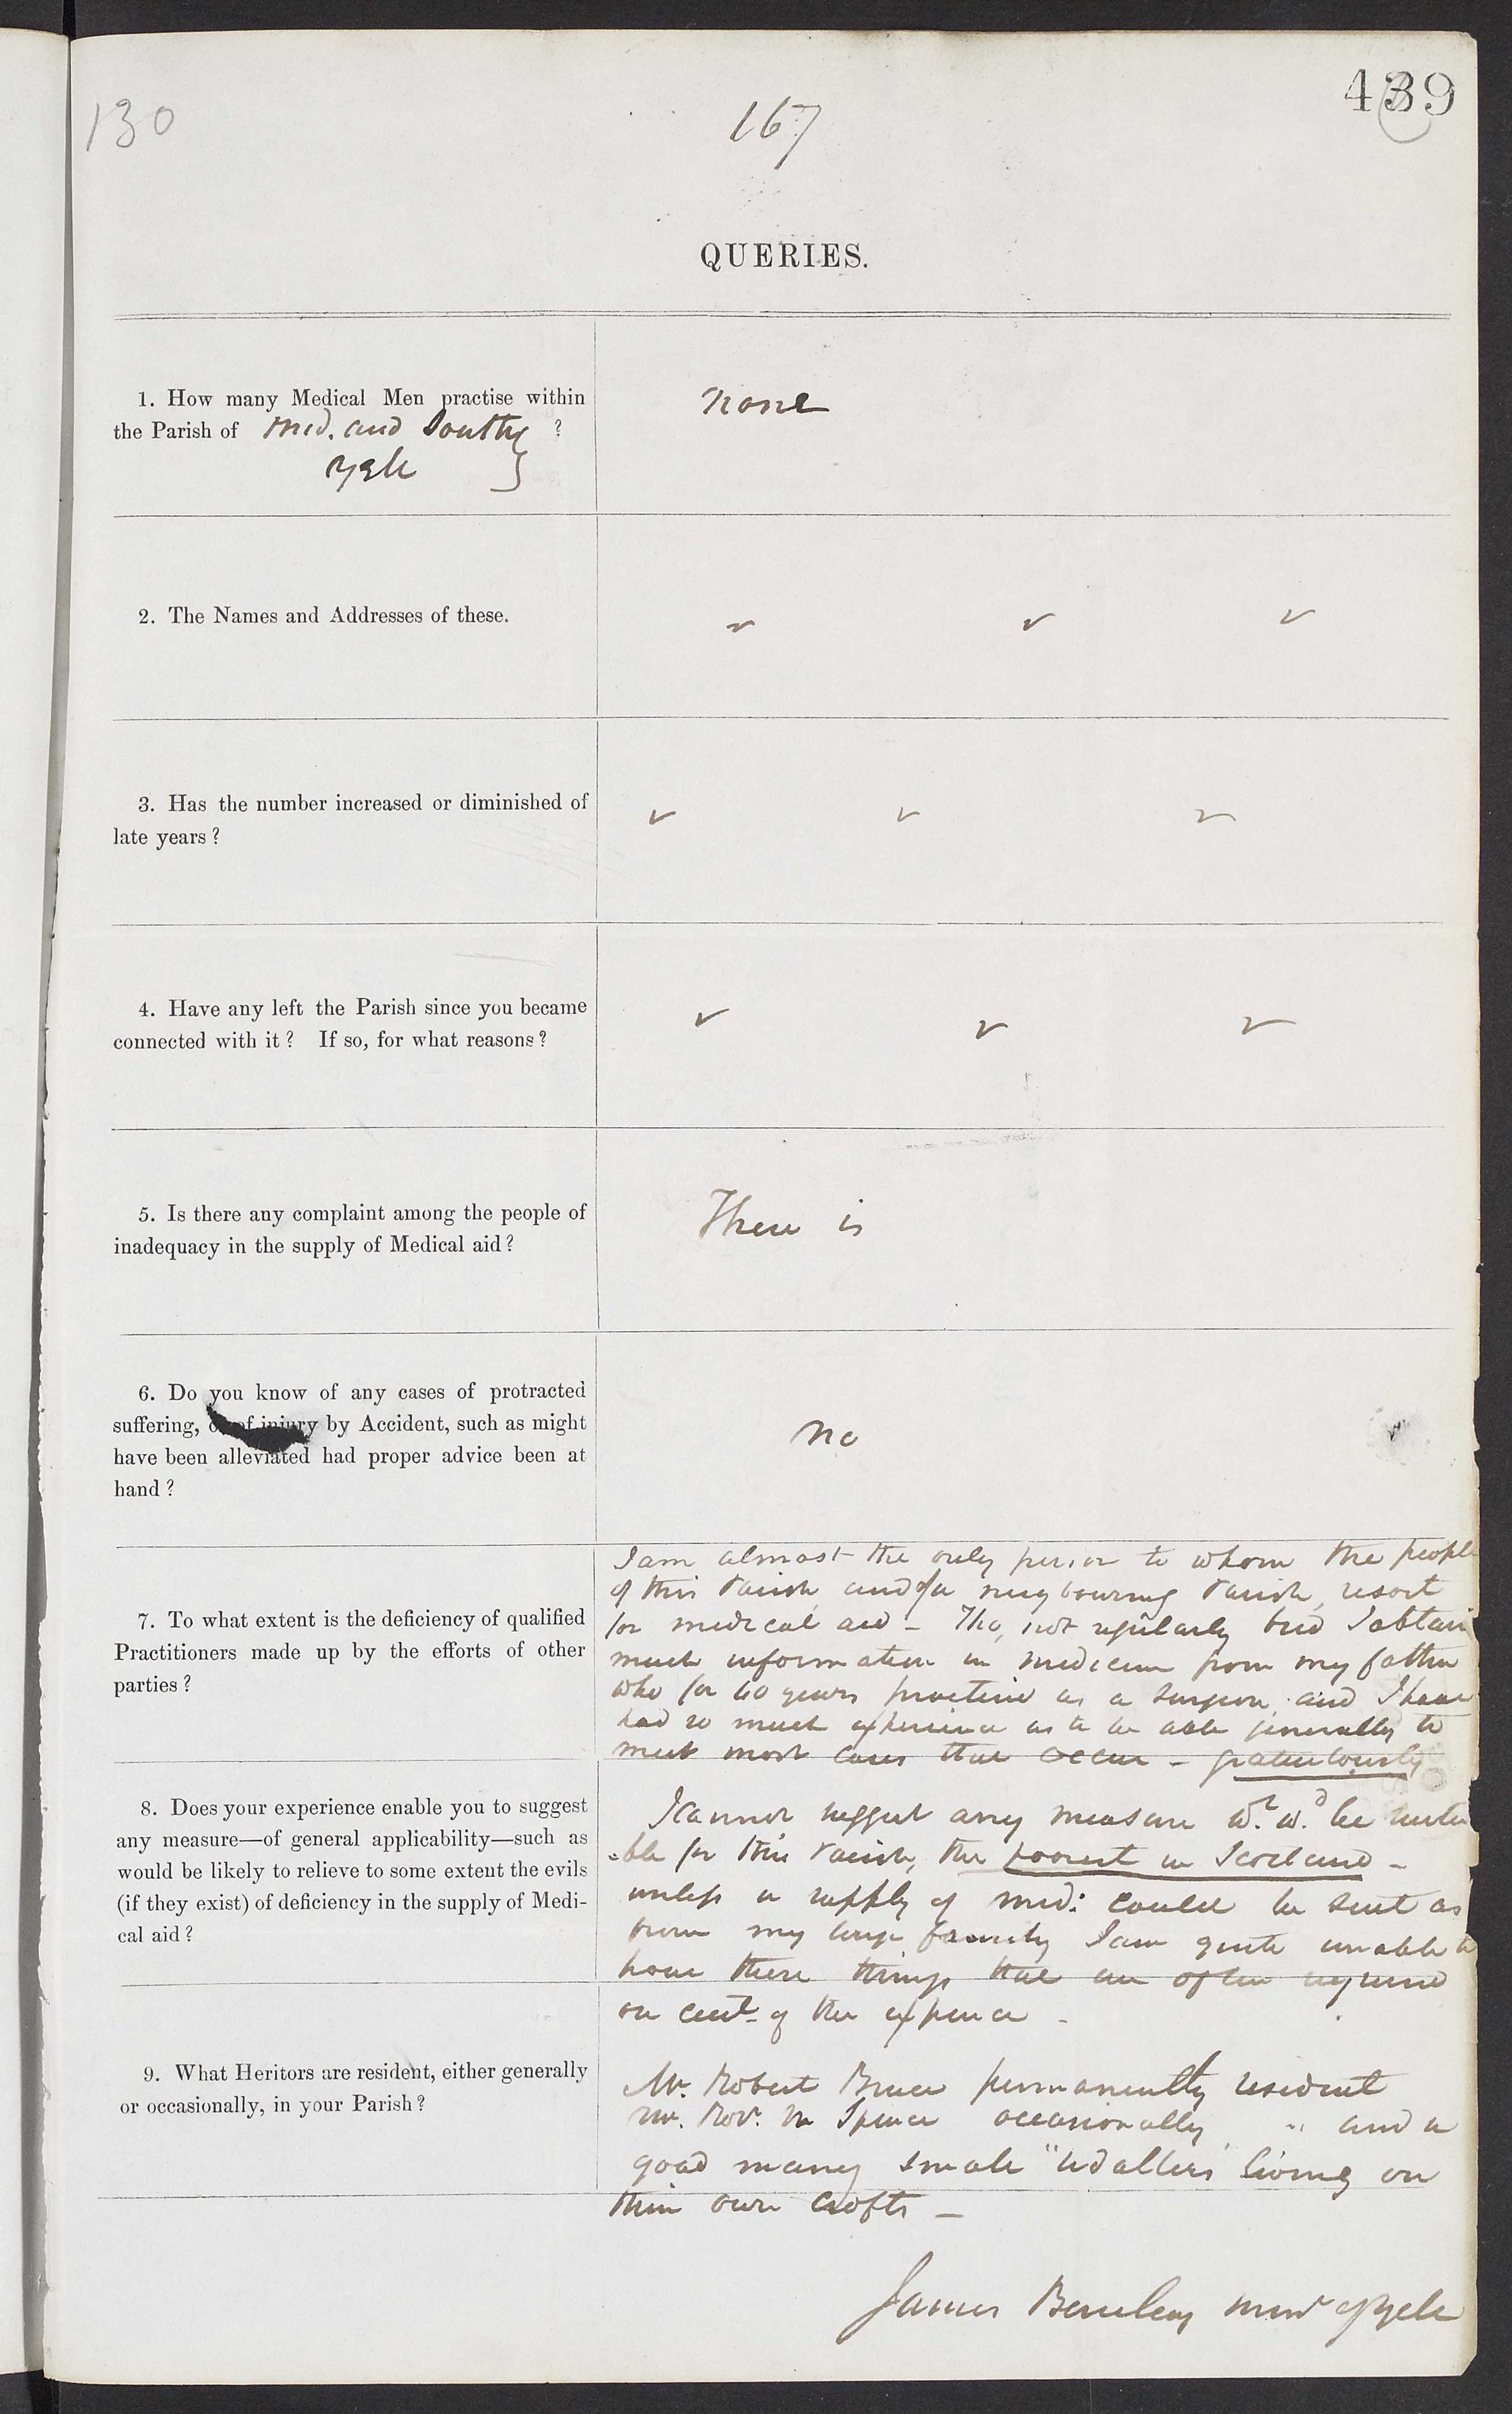 130
167
439
QUERIES.
1. How many Medical Men practise within
the Parish of Mid. and South ?
Yell
none
2. The Names and Addresses of these.
3. Has the number increased or diminished of
late years?
4. Have any left the Parish since you became
connected with it? If so, for what reasons?
5. Is there any complaint among the people of
inadequacy in the supply of Medical aid?
There is
6. Do you know of any cases of protracted
suffering, or of injury by Accident, such as might
have been alleviated had proper advice been at
hand?
no
7. To what extent is the deficiency of qualified
Practitioners made up by the efforts of other
parties?
I am almost the only person to whom the people
of this Parish, and of a neighbouring Parish, resort
for medical aid – Tho, not regularly bred I obtain
much information in medicine from my father
who for 40 years practised as a Surgeon, and I have
had so much experience as to be able generally to
meet most cases that occur – gratuitously
8. Does your experience enable you to suggest
any measure—of general applicability—such as
would be likely to relieve to some extent the evils
(if they exist) of deficiency in the supply of Medi-
cal aid?
I cannot suggest any measure wh. wd. be suita
-ble for this Parish, the poorest in Scotland –
unless a supply of med: could be sent as
from my large family I am quite unable to
have these things that are often required
on acct. of the expence –
9. What Heritors are resident, either generally
or occasionally, in your Parish?
Mr. Robert Bruce permanently resident
Mr. Spence occasionally " and a
good many small "Udallers" living on
their own crofts –
James Barclay minr of Yell